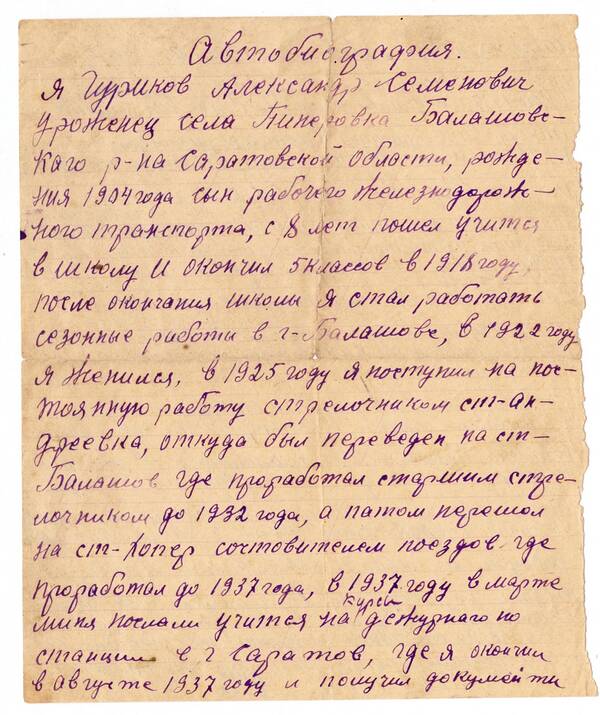 Автобиография.
Я Гуриков Александр Семенович
уроженец села Пинеровка Балашовс-
каго р-на Саратовской области, рожде-
ния 1904 года сын рабочего железнодорож-
ного транспорта, с 8 лет пошел учится
в школу и окончил 5 классов в 1918 году,
после окончания школы я стал работать
сезонные работы в г-Балашове, в 1922 году
я женился, в 1925 году я поступил на пос-
тоянную работу стрелочником ст-ан-
дреевка, откуда был переведен на ст-
Балашов где проработал старшим стре-
лочником до 1932 года, а патом перешол
на ст-Хопер сочтовителем поездов где
проработал до 1937 года, в 1937 году в марте
миня послали учится на курсы дежурнаго по
станции в г Саратов, где я окончил
в августе 1937 году и получил документи